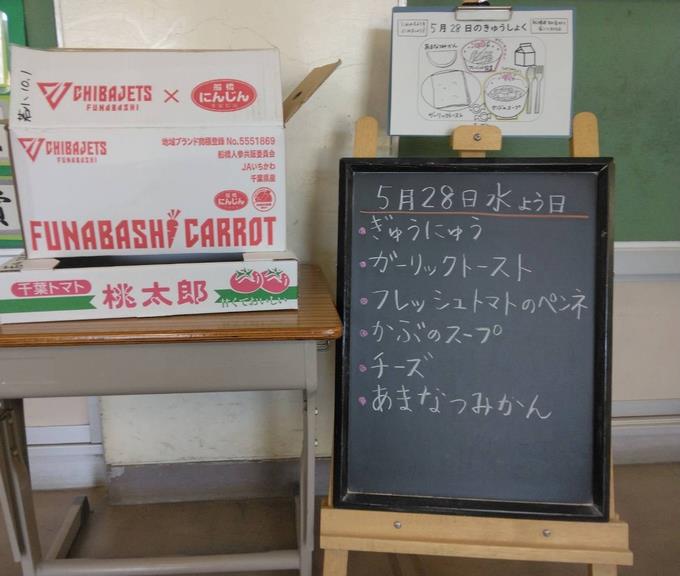 CHIBAJETS
FUNABASHI
×
船橋
にんじん
CHIBAJETS
FUNABASHI
地域ブランド商標登録 No.5551869
船橋人参共販委員会
JAいちかわ
千葉県産
船橋
にんじん
FUNABASHI CARROT
千葉トマト
桃太郎
甘くておいしい
5月28日のきゅうしょく
あまなつみかん
ガーリックトースト
かぶのスープ
5月28日水よう日
ぎゅうにゅう
ガーリックトースト
フレッシュトマトのペンネ
かぶのスープ
チーズ
あまなつみかん